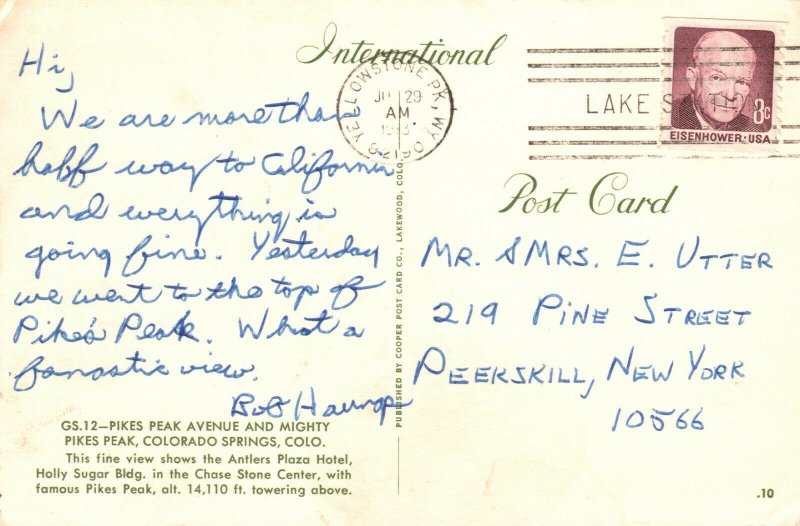 International
YELLOWSTONE PK, WYO
29
AM
LAKE
8c
EISENHOWER·USA
Post Card
Hi,
We are more than
half way to California
and everything is
going fine. Yesterday
we went to the top of
Pike's Peak. What a
fanastic view.
Bob
MR. & MRS. E. UTTER
219 PINE STREET
PEEKSKILL, NEW YORK
10566
PUBLISHED BY COOPER POST CARD CO., LAKEWOOD, COLO.
GS.12—PIKES PEAK AVENUE AND MIGHTY
PIKES PEAK, COLORADO SPRINGS, COLO.
This fine view shows the Antlers Plaza Hotel,
Holly Sugar Bldg. in the Chase Stone Center, with
famous Pikes Peak, alt. 14,110 ft. towering above.
.10